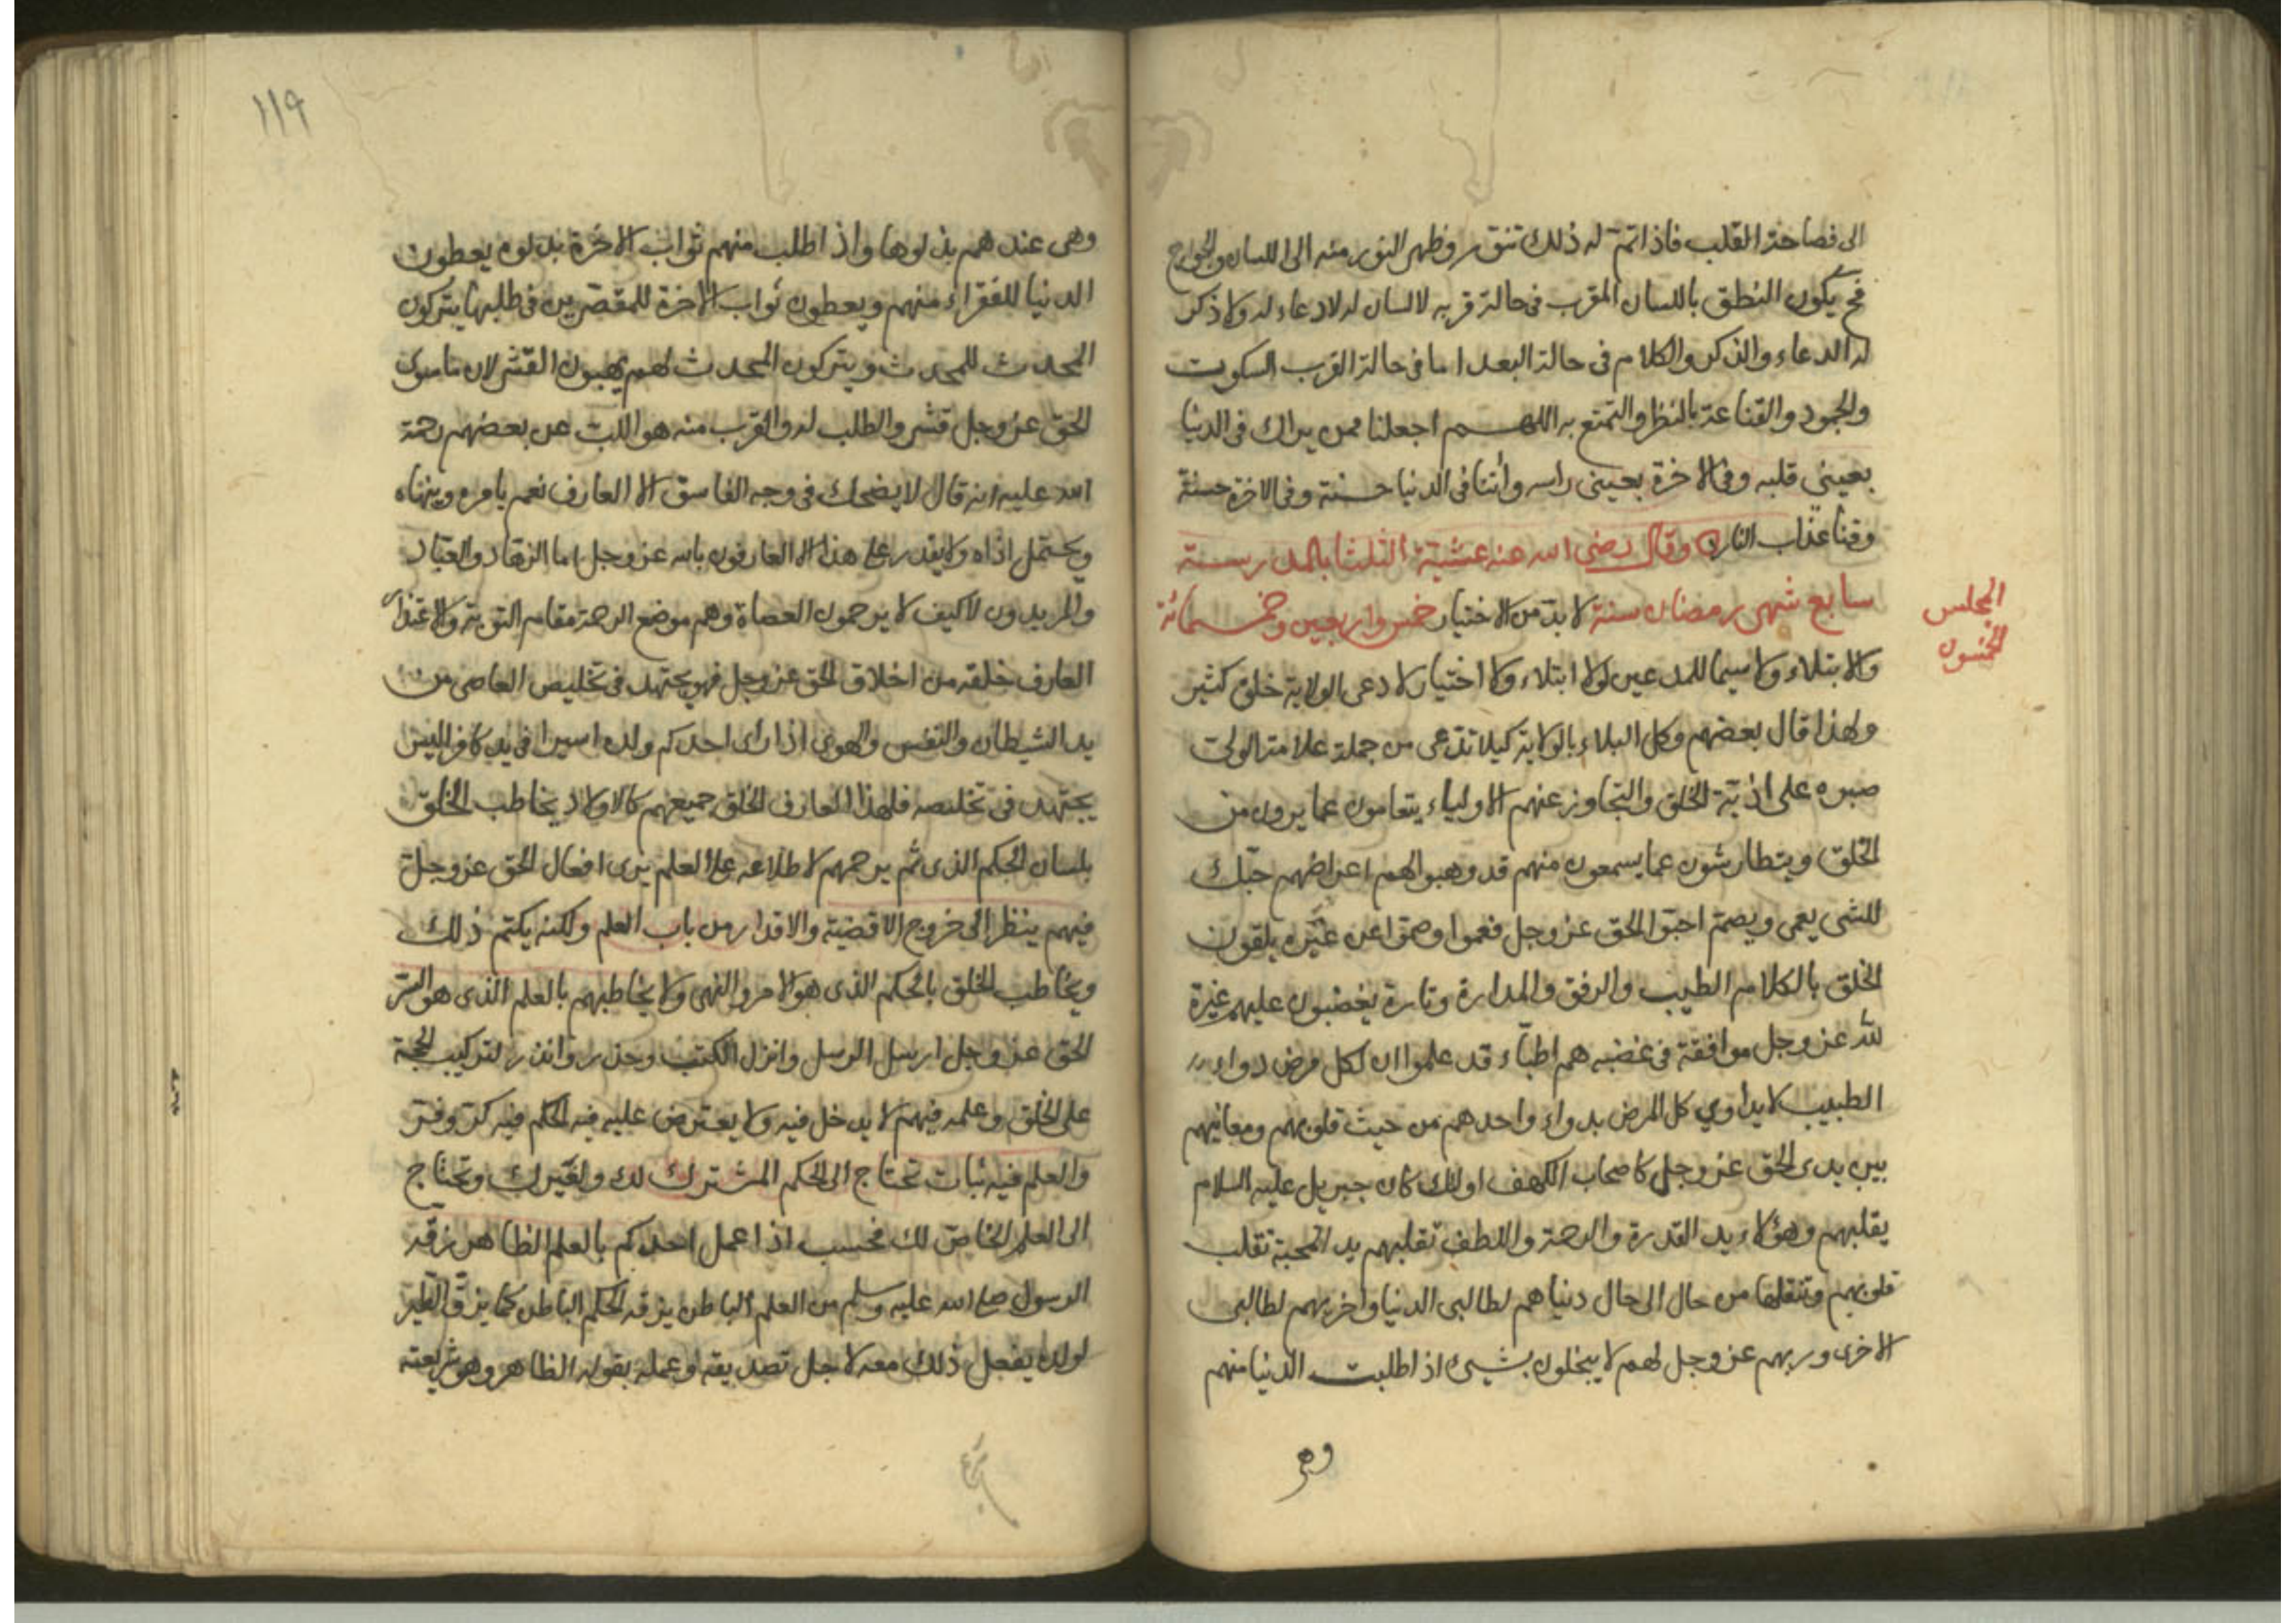 الى فصاحة القلب فاذا تم له ذلك تنور وظهر النور منه الى اللسان والجوارح
فح يكون النطق باللسان المقرب فى حالة قربه لا لسان له لا دعاء له ولا ذكر
له الدعاء والذكر والكلام فى حالة البعد اما فى حالة القرب السكوت
والجمود والقناعة بالنظر والتمتع به اللهم اجعلنا ممن يراك فى الدنيا
بعينى قلبه وفى الاخرة بعينى راسه وأتنا فى الدنيا حسنة وفى الاخرة حسنة
وقنا عذاب النار وقال رضى الله عنه عشية الثلثا بالمدرسة
سابع شهر رمضان سنة لا بد من الاختيار خمس واربعين وخمسمائة
المجلس
الخمسون
والابتلاء ولا سيما للمدعين لولا ابتلاء ولا اختيار لادعى الولاية خلق كثير
ولهذا قال بعضهم وكل البلاء بالولاية كيلا تدعى من جملة علامة الولى
صبره على اذية الخلق والتجاوز عنهم الاولياء يتعامون عما يرون من
الخلق ويتطارشون عما يسمعون منهم قد وهبوا لهم اعراضهم حبك
للشى يعمى ويصم احبوا الحق عز وجل فعموا وصموا عن غيره يلقون
الخلق بالكلام الطيب والرفق والمدارة وتارة يغضبون عليهم غيرة
لله عز وجل موافقة فى غضبه هم اطباء قد علموا ان لكل مرض دواء
الطبيب لا يداوي كل المرض بدواء واحد هم من حيث قلوبهم ومعانيهم
بين يدى الحق عز وجل كاصحاب الكهف اولئك كان جبريل عليه السلام
يقلبهم وهؤلاء يد القدرة والرحمة واللطف تقلبهم يد المحبة تقلب
قلوبهم وتنقلها من حال الى حال دنياهم لطالبى الدنيا واخريهم لطالبى
الاخرى وربهم عز وجل لهم لا يبخلون بشيئ اذا طلبت الدنيا منهم
وهى
١١٩
وهى عندهم بذلوها واذا طلب منهم ثواب الاخرة بذلوه يعطون
الدنيا للفقراء منهم ويعطون ثواب الاخرة للمقصرين فى طلبها يتركون
المحدث للمحدث ويتركون المحدث لهم يهبون القشر لان ما سوى
الحق عز وجل قشر والطلب له والقرب منه هو اللب عن بعضهم رحمة
الله عليه انه قال لا يضحك فى وجه الفاسق الا العارف نعم يامره وينهاه
ويحتمل اذاه ولا يقدر على هذا الا العارفون بالله عز وجل اما الزهاد والعباد
والمريدون لا كيف لا يرحمون العصاة وهم موضع الرحمة مقام التوبة والاعتذار
العارف خلقه من اخلاق الحق عز وجل فهو يجتهد فى تخليص العاصى من
يد الشيطان والنفس والهوى اذا رأى احدكم ولده اسيرا فى يد كافر اليس
يجتهد فى تخليصه فلهذا العارف الخلق جميعهم كالاولاد يخاطب الخلق
بلسان الحكم الذى ثم يرحمهم لاطلاعه على العلم يرى افعال الحق عز وجل
فيهم ينظر الى خروج الاقضية والاقدار من باب العلم ولكنه يكتم ذلك
ويخاطب الخلق بالحكم الذى هو الامر والنهى ولا يخاطبهم بالعلم الذى هو السر
الحق عز وجل ارسل الرسل وانزل الكتب وحذر وانذر لتركيب الحجة
على الخلق وعلمه فيهم لا يدخل فيه ولا يعترض عليه فيه الحكم فيه كر وفر
والعلم فيه ثبات تحتاج الى الحكم المشترك لك ولغيرك وتحتاج
الى العلم الخاص لك فحسب اذا عمل احدكم بالعلم الظاهر زقه
الرسول صلى الله عليه وسلم من العلم الباطن يزقه الحكم الباطن كما يزق الطير
لولده يفعل ذلك معه لاجل تصديقه وعمله بقوله الظاهر وهو شريعته